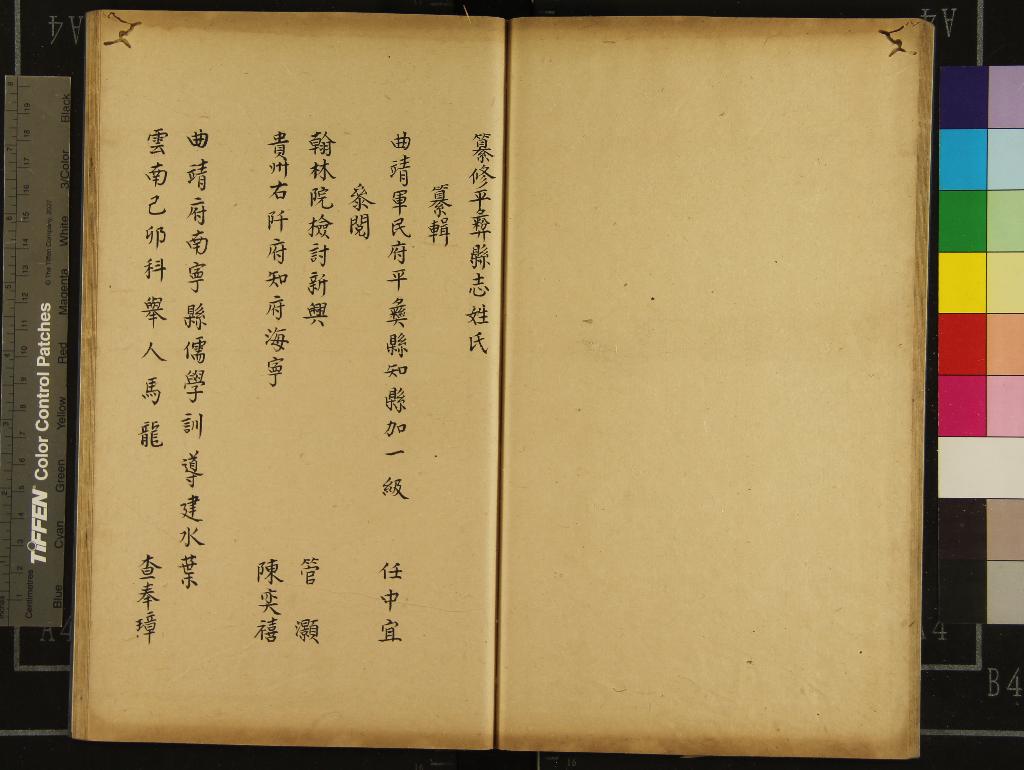 纂修平彝縣志姓氏
纂輯
曲靖軍民府平彝縣知縣加一級 任中宜
叅閱
翰林院檢討新興 管灝
貴州石阡府知府海寧 陳奕禧
曲靖府南寧縣儒學訓導建水 葉
雲南己卯科舉人馬龍 查奉璋
TIFFEN Color Control Patches
© The Tiffen Company, 2007
Centimetres
Blue
Cyan
Green
Yellow
Red
Magenta
White
3/Color
Black
A4
A4
A4
A4
B4